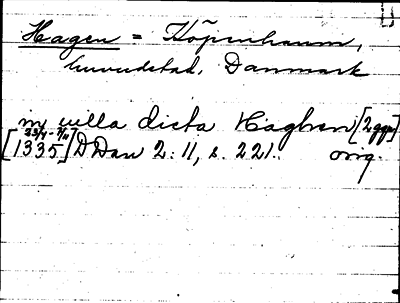 Hagen = Köpenhamn,
huvudstad, Danmark
in villa dicta Haghen [2 ggr]
[1335] DDan 2:11, s. 221. orig.